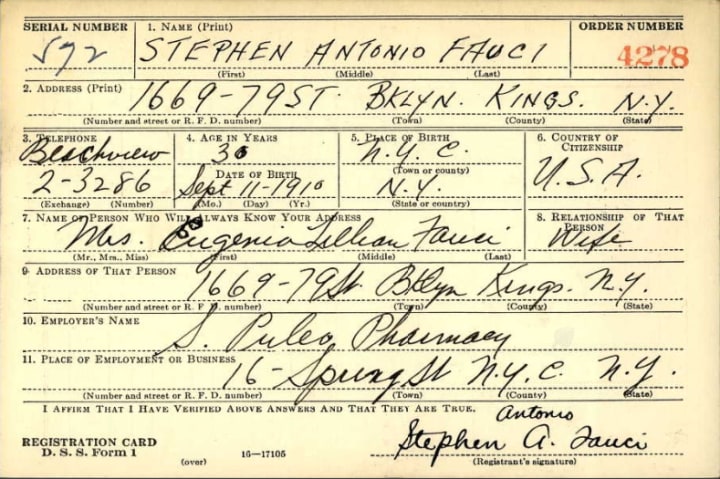 SERIAL NUMBER 1. NAME (Print) ORDER NUMBER
572 STEPHEN ANTONIO FAUCI 4278
(First) (Middle) (Last)
2. ADDRESS (Print)
1669-79 ST. BKLYN. KINGS. N.Y.
(Number and street or R. F. D. number) (Town) (County) (State)
3. TELEPHONE 4. AGE IN YEARS 5. PLACE OF BIRTH 6. COUNTRY OF CITIZENSHIP
Beachview 30 N.Y.C.
DATE OF BIRTH (Town or county) U.S.A.
2-3286 Sept 11-1910 N.Y.
(Exchange) (Number) (Mo.) (Day) (Yr.) (State or country)
7. NAME OF PERSON WHO WILL ALWAYS KNOW YOUR ADDRESS 8. RELATIONSHIP OF THAT PERSON
Mrs. Eugenia Lillian Fauci Wife
(Mr., Mrs., Miss) (First) (Middle) (Last)
9. ADDRESS OF THAT PERSON
1669-79 St. Bklyn Kings. N.Y.
(Number and street or R. F. D. number) (Town) (County) (State)
10. EMPLOYER'S NAME
S. Puleo Pharmacy
11. PLACE OF EMPLOYMENT OR BUSINESS
16-Spring St N.Y.C. N.Y.
(Number and street or R. F. D. number) (Town) (County) (State)
I AFFIRM THAT I HAVE VERIFIED ABOVE ANSWERS AND THAT THEY ARE TRUE.
Antonio
Stephen A. Fauci
REGISTRATION CARD
D. S. S. Form 1 (over) 16-17105 (Registrant's signature)